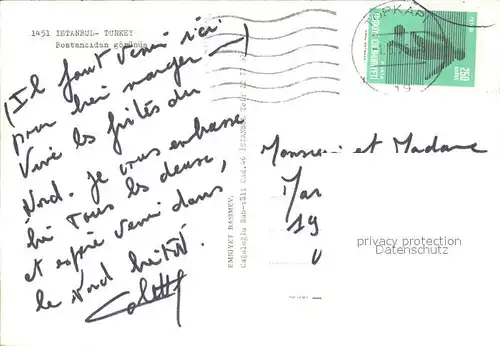 1451 ISTANBUL- TURKEY
Bostancıdan görünüş
TOPKAPI
(Il faut venir ici
pour bien manger -)
Vive les frites du
Nord. Je vous embrasse
bien tous les deux
et espère venir dans
le Nord bientôt.
EMNİYET BASIMEV.
Cağaloğlu Bab-ıâli Cad.46 İSTANBUL Tel: 22 77
250
Monsieur et Madame
Mar
19
privacy protection
Datenschutz